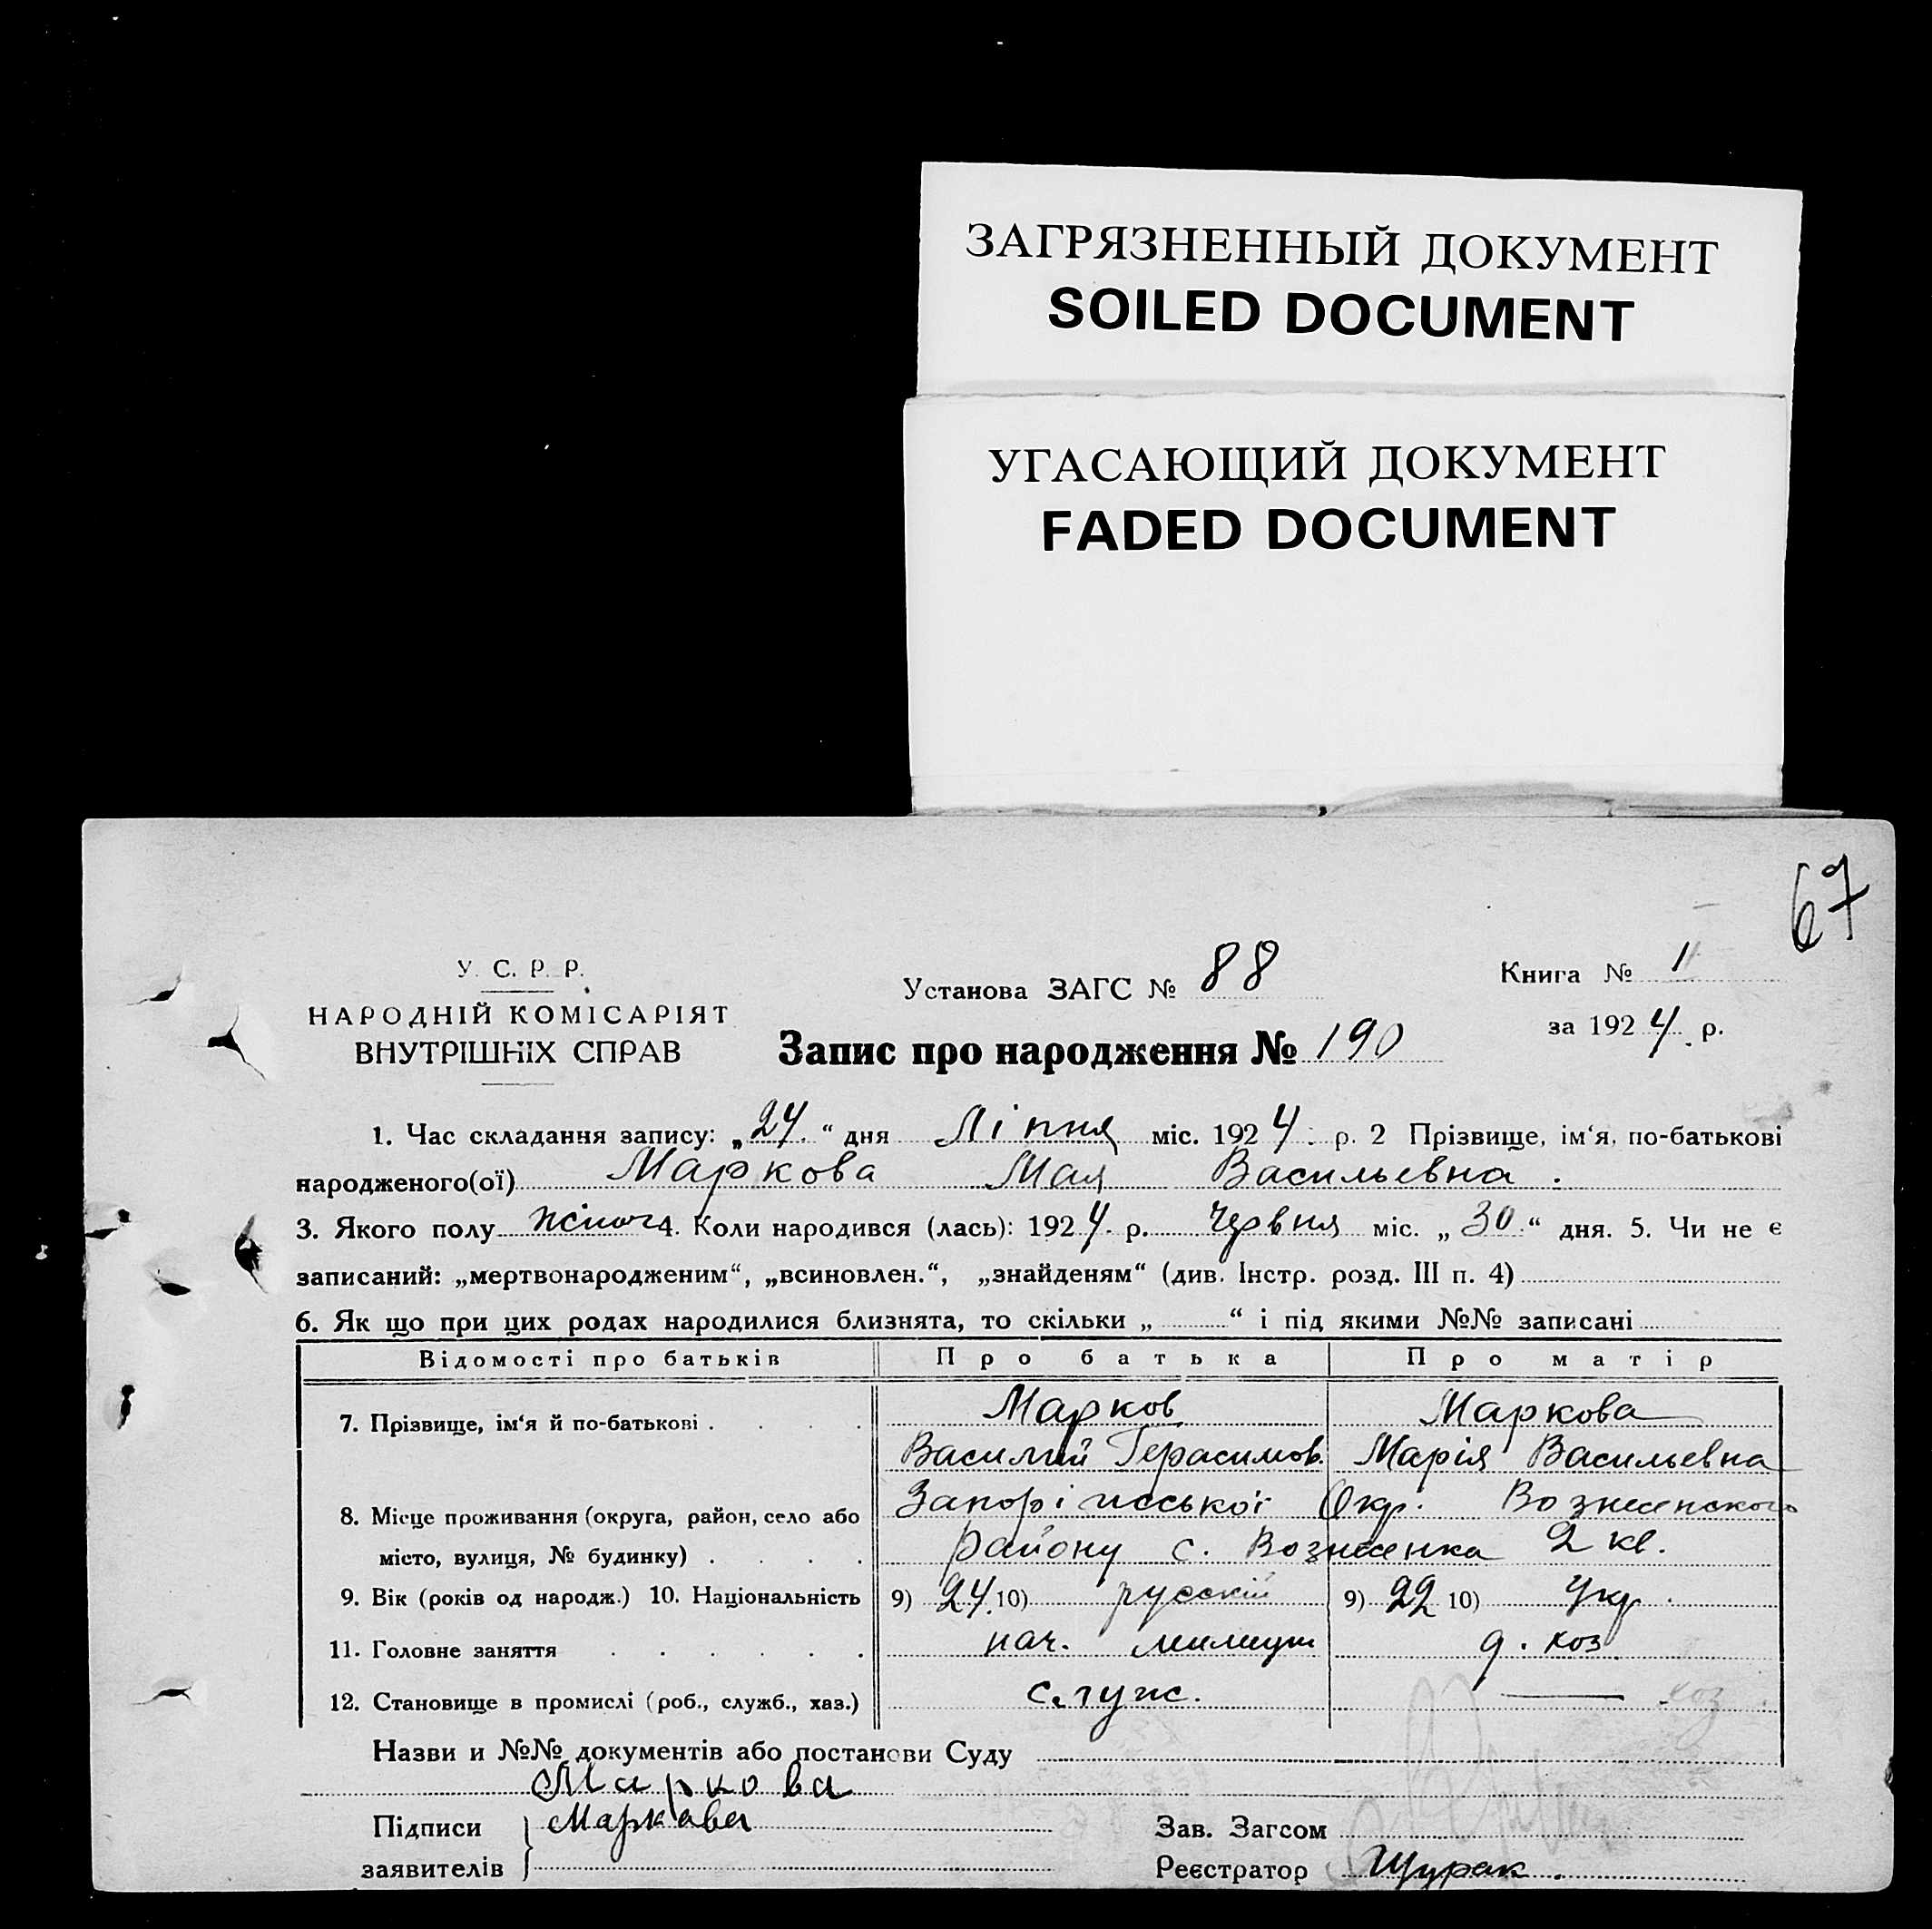 ЗАГРЯЗНЕННЫЙ ДОКУМЕНТ
SOILED DOCUMENT
УГАСАЮЩИЙ ДОКУМЕНТ
FADED DOCUMENT
67
У. С. Р. Р.
НАРОДНІЙ КОМІСАРІЯТ
ВНУТРІШНІХ СПРАВ
Установа ЗАГС № 88
Книга № 1
за 1924 р.
Запис про народження № 190
1. Час складання запису: „24.“ дня Ліпня міс. 1924. р. 2 Прізвище, ім‘я, по-батькові
народженого(ої) Маркова Мая Васильевна.
3. Якого полу жіноч 4. Коли народився (лась): 1924. р. Червня міс. „30“ дня. 5. Чи не є
записаний: „мертвонародженим“, „всиновлен.“, „знайденям“ (див. Інстр. розд. III п. 4)
6. Як що при цих родах народилися близнята, то скільки „ “ і під якими №№ записані
Відомості про батьків Про батька Про матір
7. Прізвище, ім‘я й по-батькові . Марков Маркова
Василий Герасимов. Марія Васильевна
8. Місце проживання (округа, район, село або Запоріжської Окр. Вознесенского
місто, вулиця, № будинку) . району с. Вознесенка 2 кв.
9. Вік (років од народж.) 10. Національність 9) 24. 10) русскій 9) 22 10) Укр.
11. Головне заняття нач. милиции д. хоз.
12. Становище в промислі (роб., служб., хаз.) служ. — хоз.
Назви и №№ документів або постанови Суду
Маркова
Підписи Маркава
заявителів
Зав. Загсом
Реєстратор Щурак.